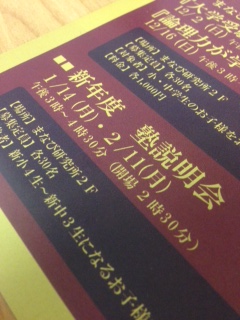 大学受
2/2(日)
『論理力が学
12/16(日)午後3時
【場所】まなび研究所2F
【募集定員】各30名
【対象者】小・中学生のお子様を
【料金】各1,000円
■新年度 塾説明会
1/14(月)・2/11(月)
午後3時~4時30分(開場2時30分)
【場所】まなび研究所2F
【募集定員】各30名
【対象者】新小4生~新中3生になるお子様